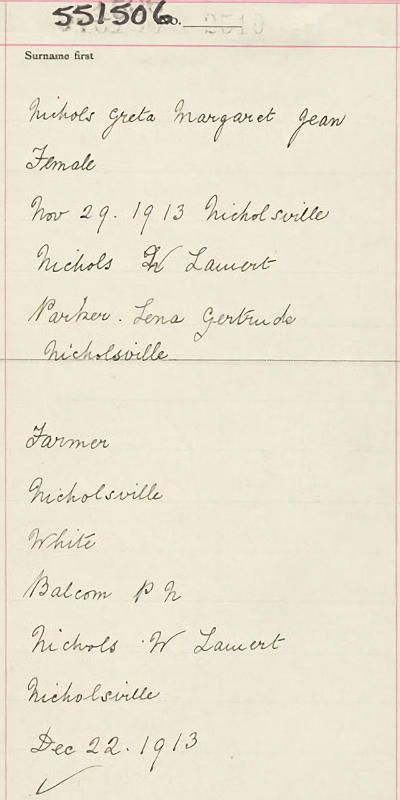 551506 No.
Surname first
Nichols Greta Margaret Jean
Female
Nov 29. 1913 Nicholsville
Nichols W Lamert
Parker. Lena Gertrude
Nicholsville
Farmer
Nicholsville
White
Balcom P N
Nichols W Lamert
Nicholsville
Dec 22. 1913